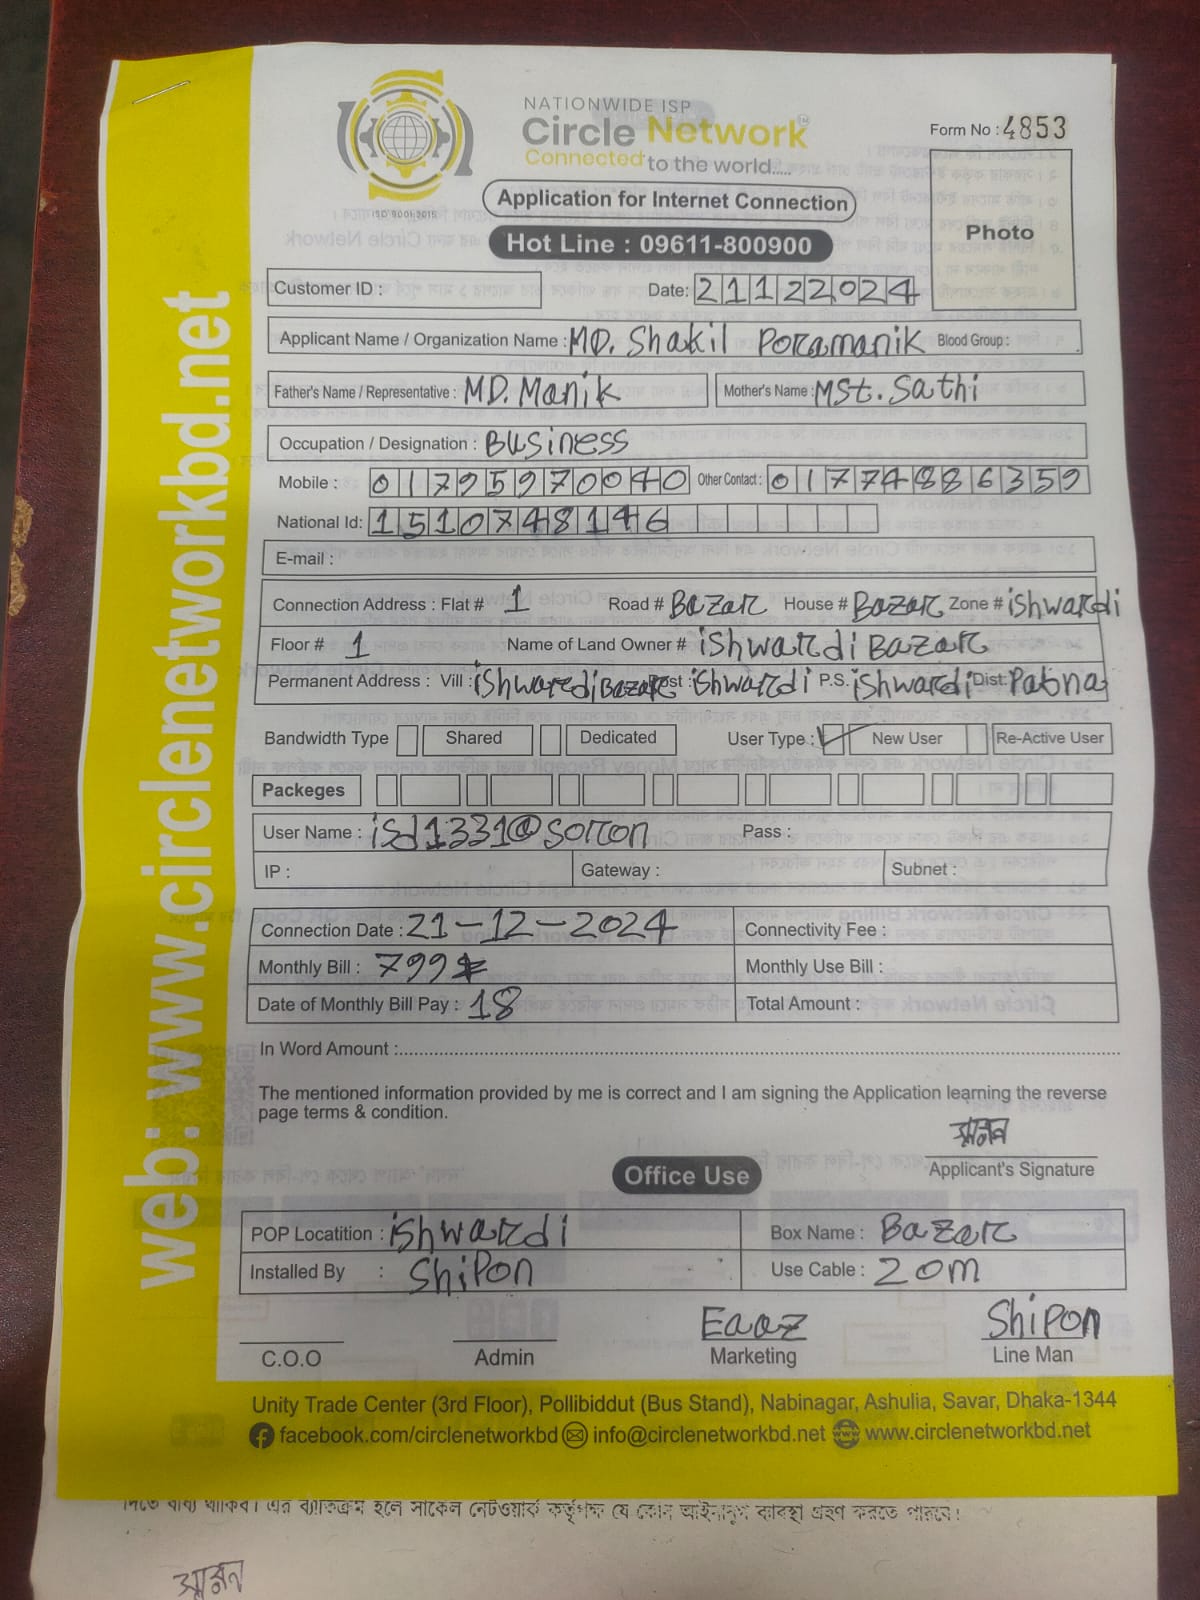 NATIONWIDE ISP
Circle Network
Connected to the world.....
ISO 9001:2015
Form No : 4853
Application for Internet Connection
Hot Line : 09611-800900
Photo
Customer ID :
Date: 21122024
Applicant Name / Organization Name : MD. Shakil Poramanik Blood Group :
Father's Name / Representative : MD. Manik Mother's Name : MSt. Sathi
Occupation / Designation : Business
Mobile : 01795970040 Other Contact : 01774886359
National Id: 1510748146
E-mail :
Connection Address : Flat # 1 Road # Bazar House # Bazar Zone # ishwardi
Floor # 1 Name of Land Owner # ishwardi Bazar
Permanent Address : Vill : ishwardi Bazar Post : ishwardi P.S. ishwardi Dist: Pabna
Bandwidth Type Shared Dedicated User Type : New User Re-Active User
Packeges
User Name : isd1331@soron Pass :
IP : Gateway : Subnet :
Connection Date : 21-12-2024 Connectivity Fee :
Monthly Bill : 799 Monthly Use Bill :
Date of Monthly Bill Pay : 18 Total Amount :
In Word Amount :
The mentioned information provided by me is correct and I am signing the Application learning the reverse
page terms & condition.
Applicant's Signature
Office Use
POP Locatition : ishwardi Box Name : Bazar
Installed By : Shipon Use Cable : 20m
Eaaz Shipon
C.O.O Admin Marketing Line Man
Unity Trade Center (3rd Floor), Pollibiddut (Bus Stand), Nabinagar, Ashulia, Savar, Dhaka-1344
facebook.com/circlenetworkbd info@circlenetworkbd.net www.circlenetworkbd.net
web: www.circlenetworkbd.net
দিতে বাধ্য থাকিব। এর ব্যাতিক্রম হলে সার্কেল নেটওয়ার্ক কর্তৃপক্ষ যে কোন আইনানুগ ব্যবস্থা গ্রহণ করতে পারবে।